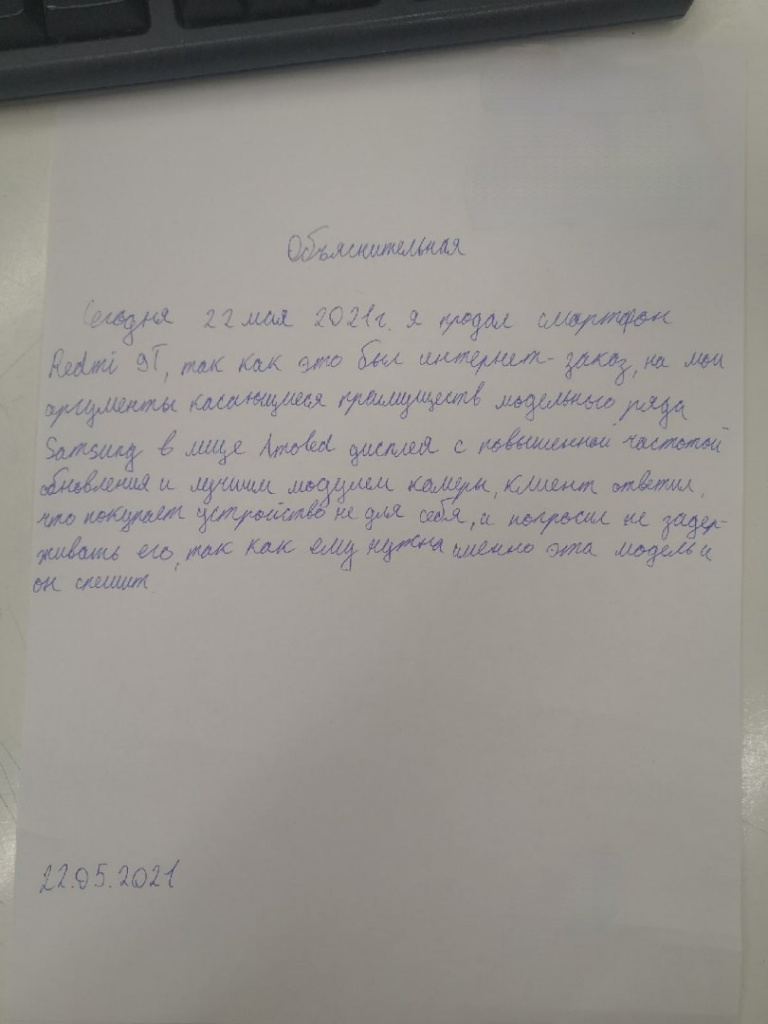 Объяснительная
Сегодня 22 мая 2021г. я продал смартфон
Redmi 9T, так как это был интернет-заказ, на мои
аргументы касающиеся преимуществ модельного ряда
Samsung в лице Amoled дисплея с повышенной частотой
обновления и лучшим модулем камеры, клиент ответил,
что покупает устройство не для себя, и попросил не задер-
живать его, так как ему нужна именно эта модель и
он спешит
22.05.2021